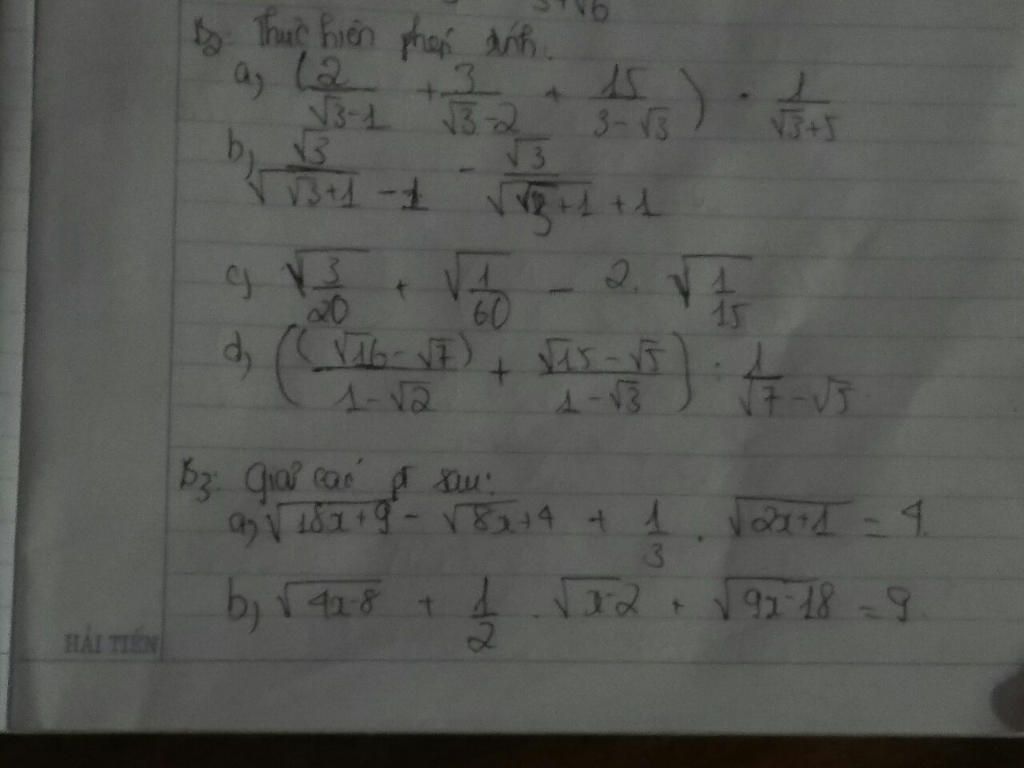 3+√6
B2: Thực hiện phép tính.
a, (2/(√3-1) + 3/(√3-2) + 15/(3-√3)) · 1/(√3+5)
b, √3/(√(√3+1) - 1) - √3/(√(√3+1) + 1)
c, √(3/20) + √(1/60) - 2. √(1/15)
d, ((√16-√7)/(1-√2) + (√15-√5)/(1-√3)) : 1/(√7-√5)
B3: Giải các pt sau:
a, √(18x+9) - √(8x+4) + 1/3 . √(2x+1) = 4.
b, √(4x-8) + 1/2 . √(x-2) + √(9x-18) = 9.
HẢI TIẾN